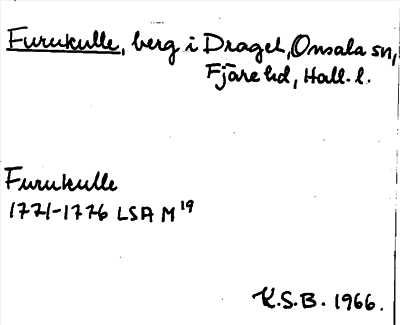 Furukulle, berg i Draget, Onsala sn,
Fjäre hd, Hall. l.
Furukulle
1771-1776 LSA M 19
K.S.B. 1966.